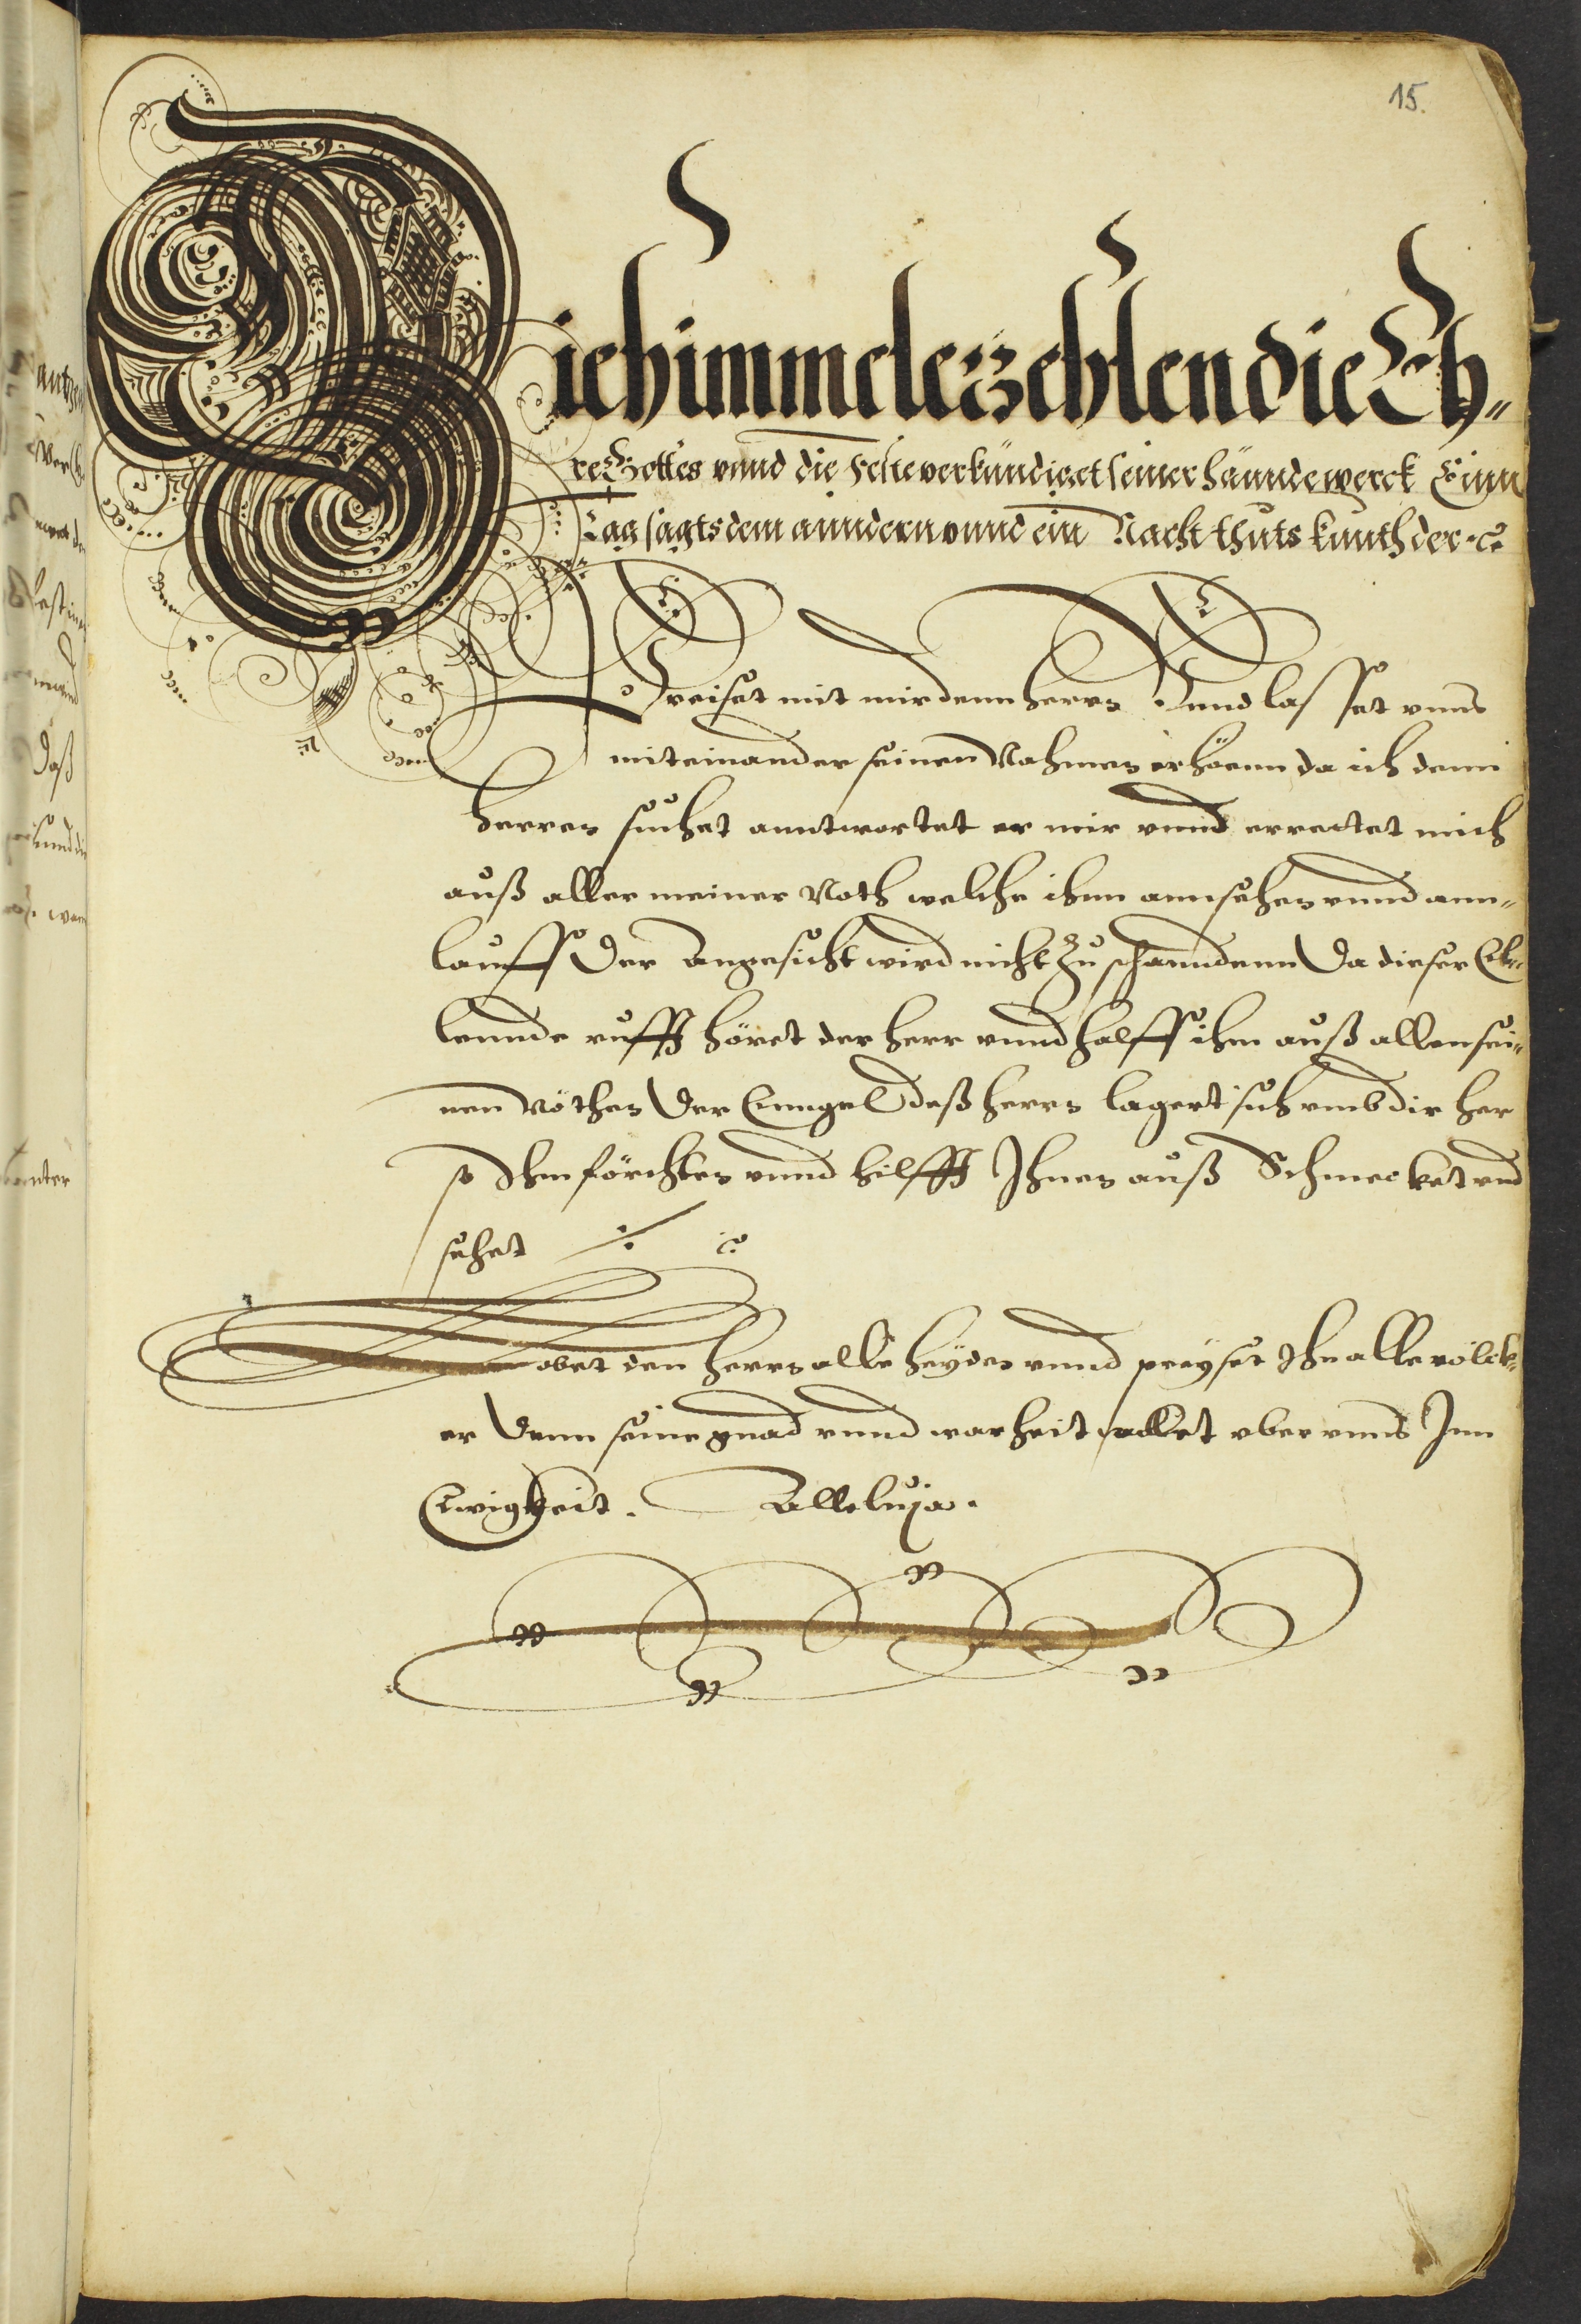 15.
Die himmel erzehlen die Eh„
re Gottes vnnd die Feste verkündiget seiner hännde werck Einn
Tag sagts dem anndern vnnd ein Nacht thuts kunth der ꝛc
Preiset mit mir denn herrn Vnnd lasset vnns
miteinander seinen Nahmen erhöenn da ich denn
herren suchet anntwortet er mir vnnd errettet mich
auß aller meiner Noth welche ihnn annsehen vnnd ann„
lauffs Der Angesicht wird nicht zu schanndenn Da dieser Ele„
lennde rufft höret der herr vnnd halff ihm auß allen sei„
nen nöthen Der Enngel deß herrn lagert sich vmb die her
so Ihn förchten vnnd hilfft Ihnen auß Schmecket vnd
sehet ꝛc
Lobet den herrn alle heyden vnnd preyset Ihn alle völck„
er Denn seine gnad vnnd warheit waltet vber vnns Inn
Ewigkeit. Alleluja.